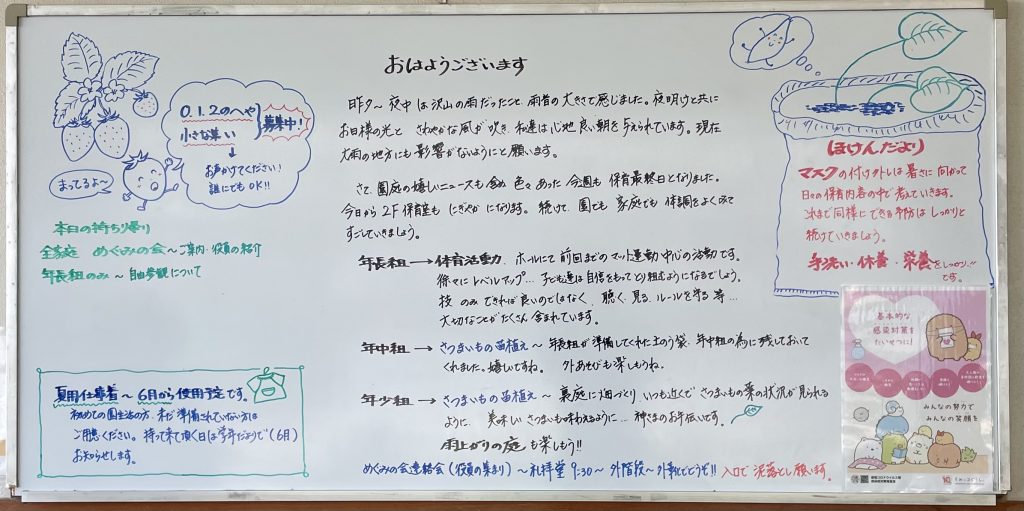 おはようございます
0.1.2のへや
小さな集い
募集中!
お声かけてください!
誰にでもOK!!
まってるよ〜
本日の持ち帰り
全家庭 めぐみの会〜ご案内・役員の紹介
年長組のみ〜自由参観について
夏用仕事着〜6月から使用予定です。
初めての園生活の方、まだ準備されていない方は
ご用意ください。持って来て頂く日は学年だよりで(6月)
お知らせします。
昨夕〜夜中は沢山の雨だったこと、雨音の大きさで感じました。夜明けと共に
お日様の光と さわやかな風が吹き、私達は心地良い朝を与えられています。現在
大雨の地方にも影響がないようにと願います。
さて、園庭の嬉しいニュースも含め 色々あった今週も 保育最終日となりました。
今日から2F保育室も にぎやかになります。続けて、園でも 家庭でも 体調をよくみて
すごしていきましょう。
年長組→体育活動 ホールにて 前回までのマット運動中心の活動です。
徐々にレベルアップ… 子ども達は自信をもってとり組むようになるでしょう。
技のみできれば良いのではなく、聴く・見る・ルールを守る 等…
大切なことがたくさん含まれています。
年中組→さつまいもの苗植え〜年長組が準備してくれた土のう袋、年中組の為に残しておいて
くれました。嬉しいですね。 外あそびも楽しもうね。
年少組→さつまいもの苗植え〜裏庭に畑づくり、いつも近くで さつまいもの葉の状況が見られる
ように、美味しいさつまいも味わえるように… 神さまのお手伝いです。
雨上がりの庭も楽しもう!!
めぐみの会連絡会(役員の集まり)〜礼拝堂 9:30〜 外階段〜外靴でどうぞ!! 入口で泥落とし願います。
ほけんだより
マスクの付け外しは暑さに向かって
日々の保育内容の中で考えていきます。
これまで同様にできる予防はしっかりと
続けていきましょう。
手洗い・休養・栄養をしっかり!!
です。
基本的な
感染対策を
たいせつに!
みんなの努力で
みんなの笑顔を